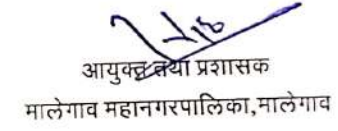 आयुक्त तथा प्रशासक
मालेगाव महानगरपालिका,मालेगाव